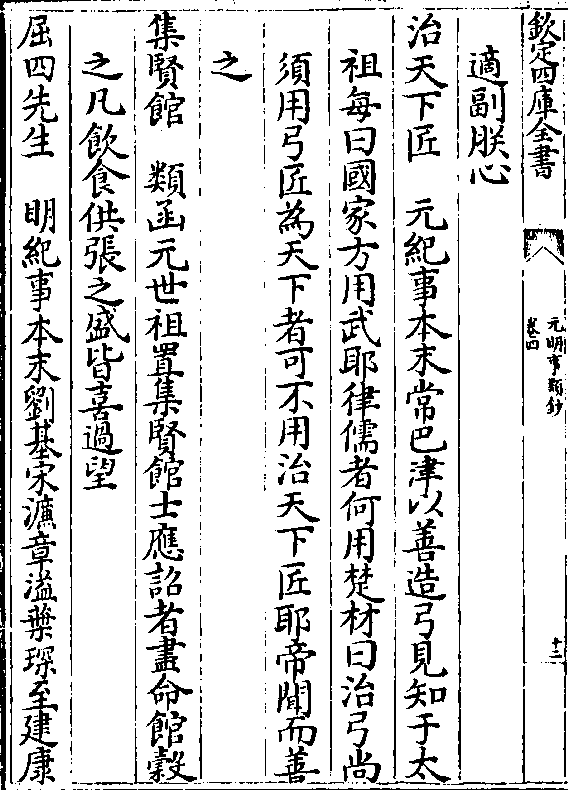 欽定四庫全書
元明事類鈔
卷四
十二
適副朕心
治天下匠　元紀事本末常巴津以善造弓見知于太
祖每曰國家方用武耶律儒者何用楚材曰治弓尚
須用弓匠為天下者可不用治天下匠耶帝聞而善
之
集賢館　類函元世祖置集賢館士應詔者盡命館穀
之凡飲食供張之盛皆喜過望
屈四先生　明紀事本末劉基宋濂章溢葉琛至建康